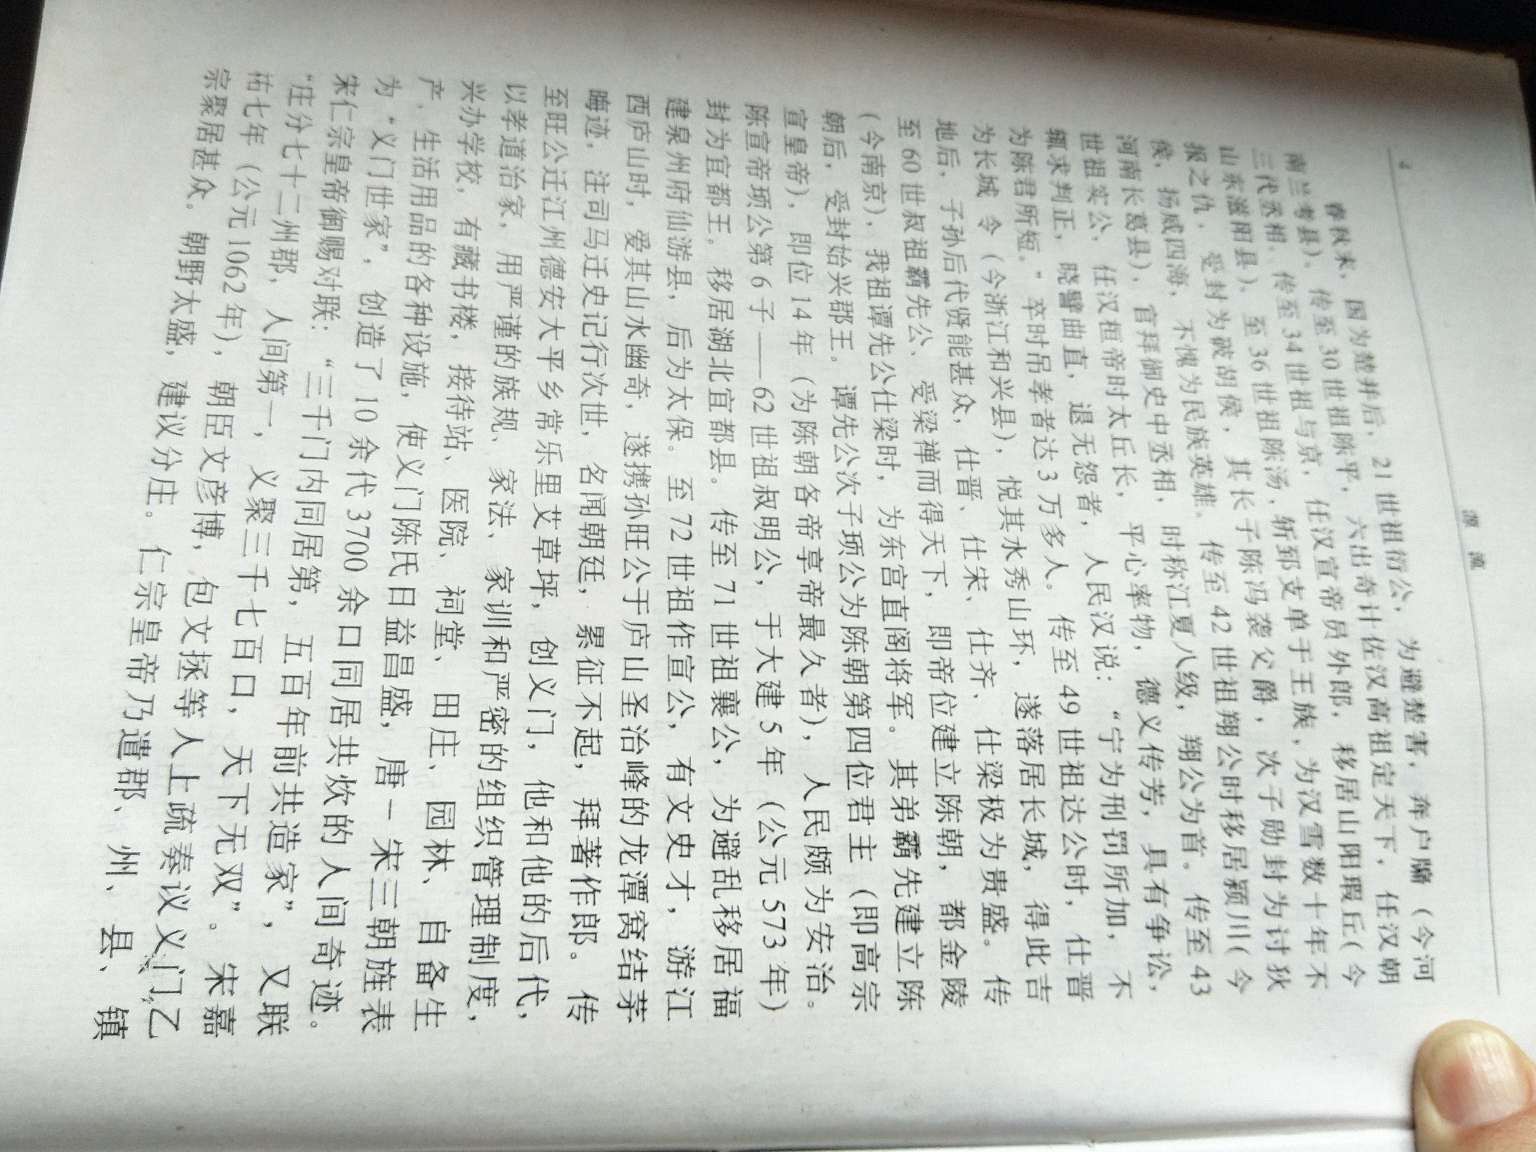 4
源流
春秋末，因为楚并后，21世祖衍公，为避楚害，奔户牖（今河
南兰考县）。传至30世祖陈平，六出奇计佐汉高祖定天下，任汉朝
三代丞相。传至34世祖与京，任汉宣帝员外郎，移居山阳瑕丘（今
山东滋阳县），至36世祖陈汤，斩郅支单于王族，为汉雪数十年不
报之仇，受封为破胡侯，其长子陈冯袭父爵，次子勋封为讨狄
侯，扬威四海，不愧为民族英雄。传至42世祖翔公时移居颍川（今
河南长葛县），官拜御史中丞相，时称江夏八级，翔公为首。传至43
世祖实公，任汉桓帝时太丘长，平心率物，德义传芳，具有争讼，
辄求判正，晓譬曲直，退无怨者，人民汉说：“宁为刑罚所加，不
为陈君所短。”卒时吊孝者达3万多人。传至49世祖达公时，仕晋
为长城令（今浙江和兴县），悦其水秀山环，遂落居长城，得此吉
地后，子孙后代贤能甚众，仕晋、仕宋、仕齐、仕梁极为贵盛。传
至60世叔祖霸先公、受梁禅而得天下，即帝位建立陈朝，都金陵
（今南京），我祖谭先公仕梁时，为东宫直阁将军。其弟霸先建立陈
朝后，受封始兴郡王。谭先公次子顼公为陈朝第四位君主（即高宗
宣皇帝），即位14年（为陈朝各帝享帝最久者），人民颇为安治。
陈宣帝顼公第6子——62世祖叔明公，于大建5年（公元573年）
封为宜都王。移居湖北宜都县。传至71世祖襄公，为避乱移居福
建泉州府仙游县，后为太保。至72世祖作宣公，有文史才，游江
西庐山时，爱其山水幽奇，遂携孙旺公于庐山圣治峰的龙潭窝结茅
晦迹，注司马迁史记行次世，名闻朝廷，累征不起，拜著作郎。传
至旺公迁江州德安大平乡常乐里艾草坪，创义门，他和他的后代，
以孝道治家，用严谨的族规、家法、家训和严密的组织管理制度，
兴办学校，有藏书楼，接待站、医院、祠堂、田庄、园林、自备生
产、生活用品的各种设施，使义门陈氏日益昌盛，唐－宋三朝旌表
为“义门世家”，创造了10余代3700余口同居共炊的人间奇迹。
宋仁宗皇帝御赐对联：“三千门内同居第，五百年前共造家”，又联
“庄分七十二州郡，人间第一，义聚三千七百口，天下无双”。朱嘉
祐七年（公元1062年），朝臣文彦博，包文拯等人上疏奏议义门乙
宗聚居甚众。朝野太盛，建议分庄。仁宗皇帝乃遣郡、州、县、镇